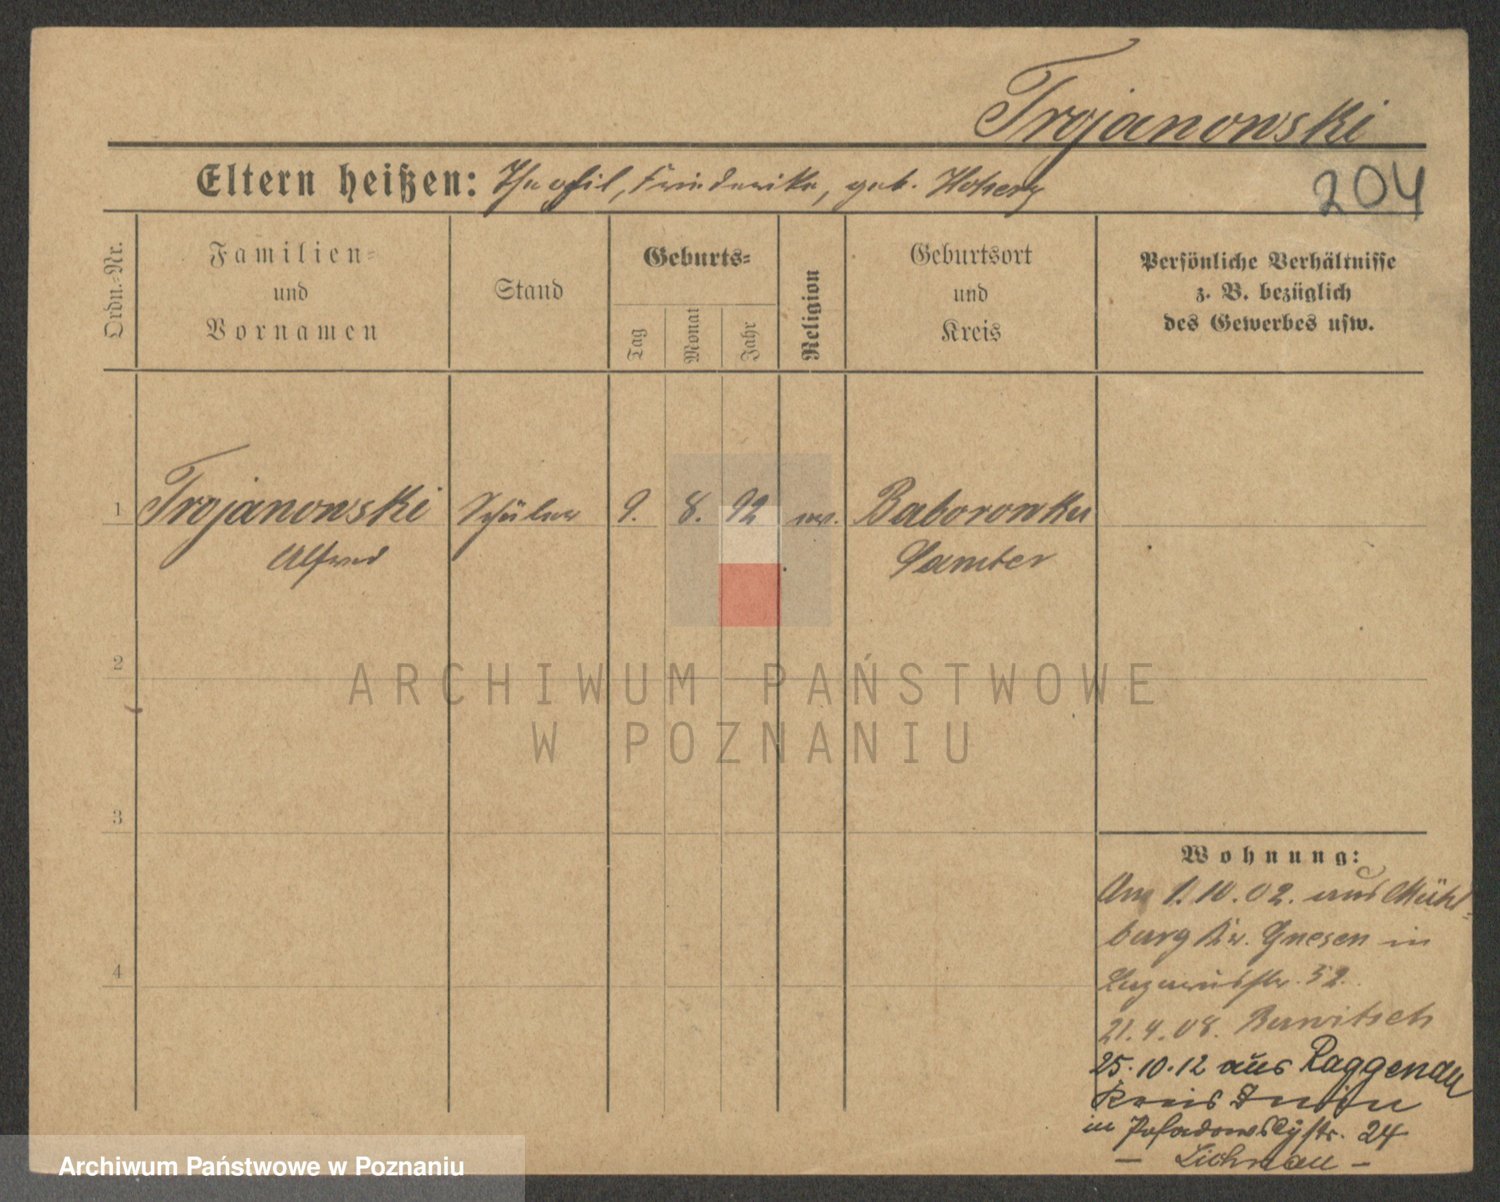 Trojanowski
204
Eltern heißen: Theofil, Friederike, geb.
Ordn.-Nr.
Familien-
und
Vornamen
Stand
Geburts-
Tag
Monat
Jahr
Religion
Geburtsort
und
Kreis
Persönliche Verhältnisse
z. B. bezüglich
des Gewerbes usw.
1 Trojanowski Schüler 9. 8. 92 Baborowko
Alfred Samter
2
ARCHIWUM PAŃSTWOWE
W POZNANIU
3
Wohnung:
Am 1.10.02. aus Mühl-
burg Kr. Gnesen in
4
52.
21.4.08.
25.10.12 aus Raggenau
Kreis Znin
in Posadowskystr. 24
Archiwum Państwowe w Poznaniu